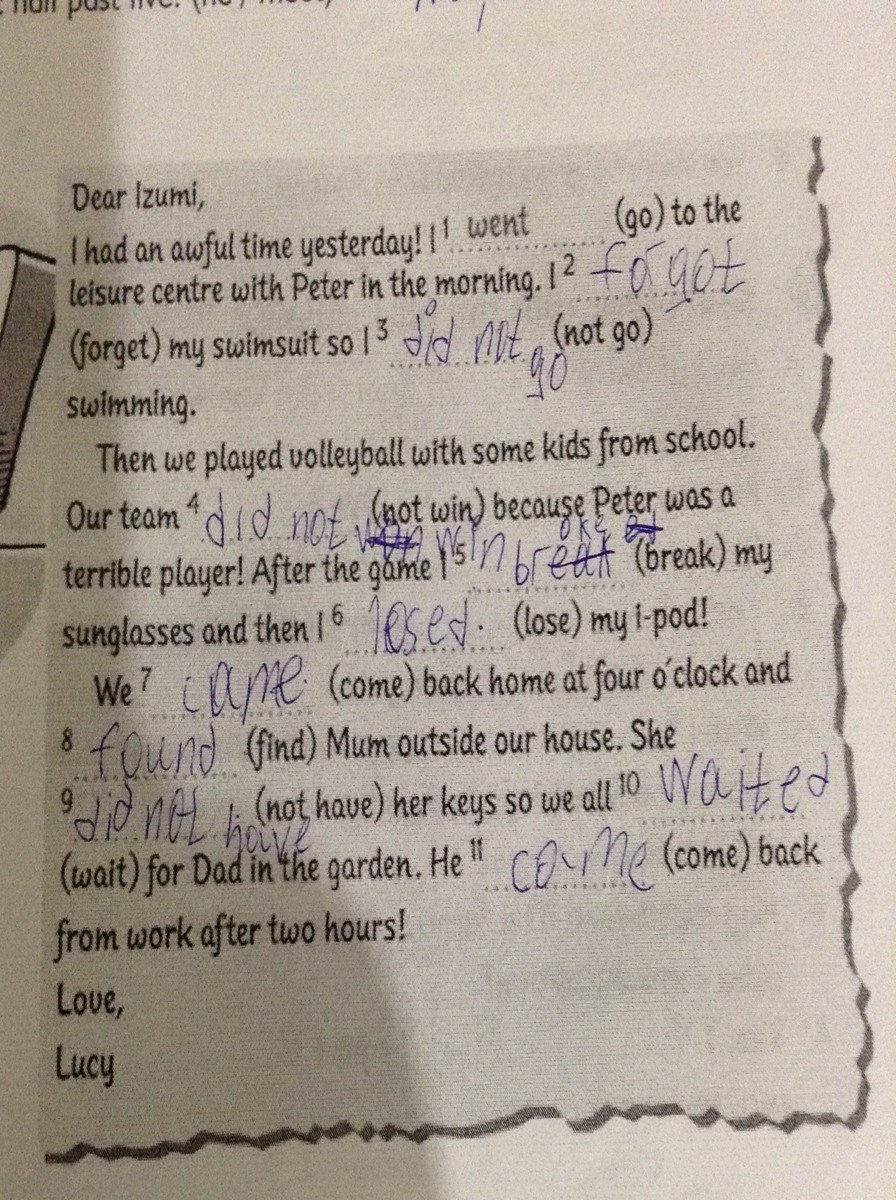 half past five. (he / meet)
Dear Izumi,
I had an awful time yesterday! I 1 went (go) to the
leisure centre with Peter in the morning. I 2 forgot
(forget) my swimsuit so I 3 did not go (not go)
swimming.
Then we played volleyball with some kids from school.
Our team 4 did not win (not win) because Peter was a
terrible player! After the game I 5 broke (break) my
sunglasses and then I 6 losed. (lose) my i-pod!
We 7 came (come) back home at four o'clock and
8 found (find) Mum outside our house. She
9 did not have (not have) her keys so we all 10 waited
(wait) for Dad in the garden. He 11 came (come) back
from work after two hours!
Love,
Lucy